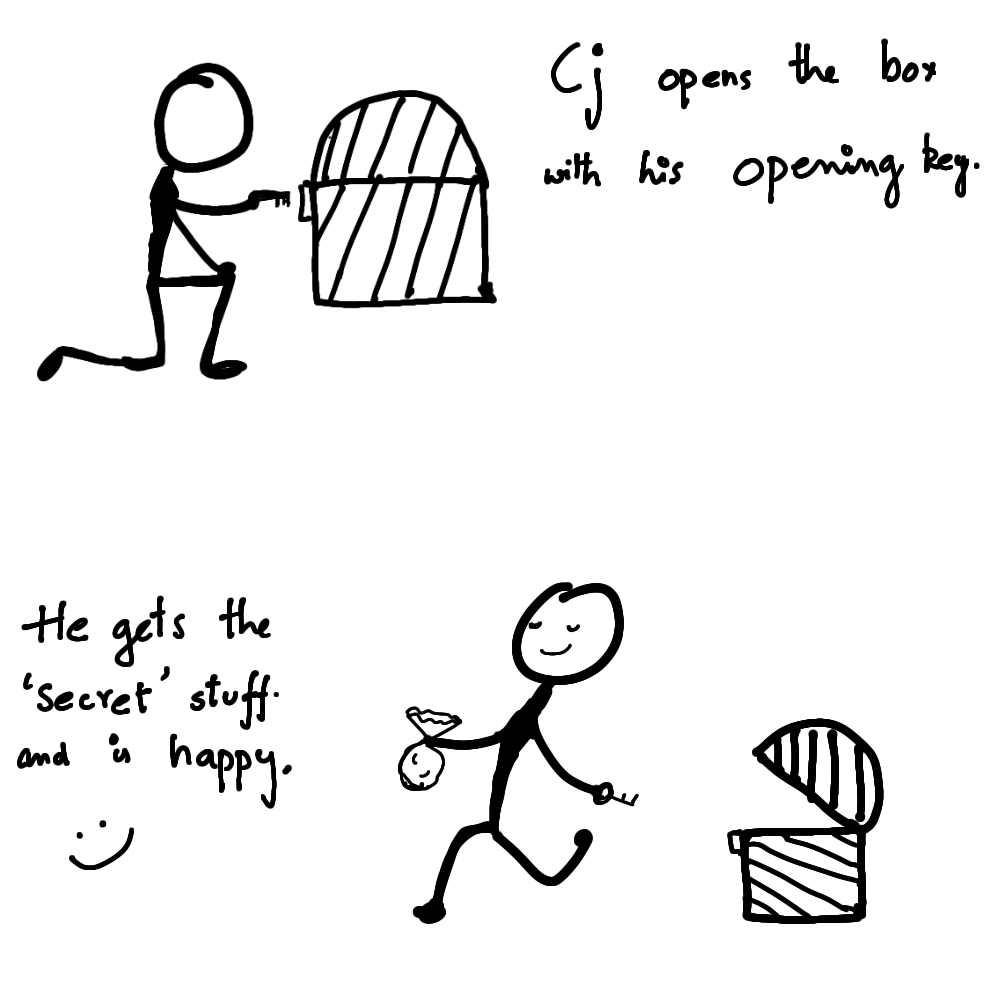 Cj opens the box
with his opening key.
He gets the
'secret' stuff.
and is happy.